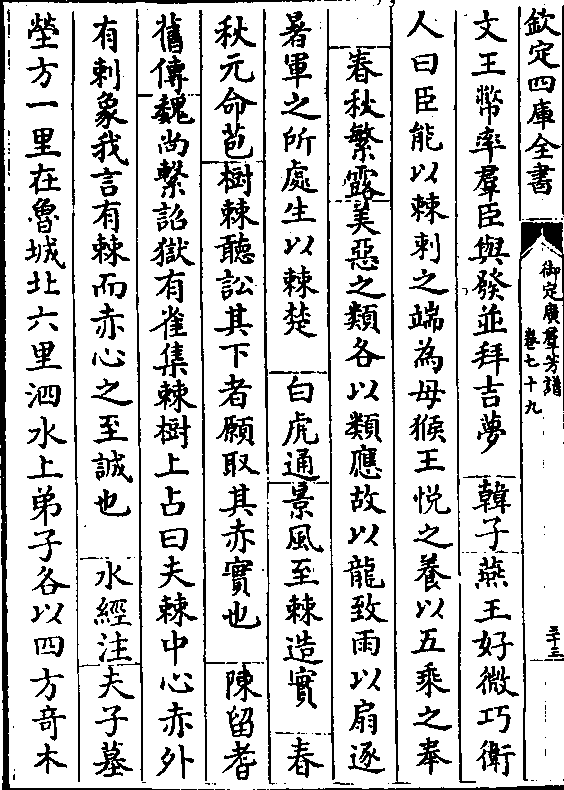 欽定四庫全書
御定廣羣芳譜
卷七十九
三十三
文王幣率羣臣與發並拜吉夢　韓子燕王好微巧衛
人曰臣能以棘刺之端為母猴王悅之養以五乘之奉
春秋繁露美惡之類各以類應故以龍致雨以扇逐
暑軍之所處生以棘楚　白虎通景風至棘造實　春
秋元命苞樹棘聽訟其下者願取其赤實也　陳留耆
舊傳魏尚繫詔獄有雀集棘樹上占曰夫棘中心赤外
有刺象我言有棘而赤心之至誠也　水經注夫子墓
塋方一里在魯城北六里泗水上弟子各以四方奇木